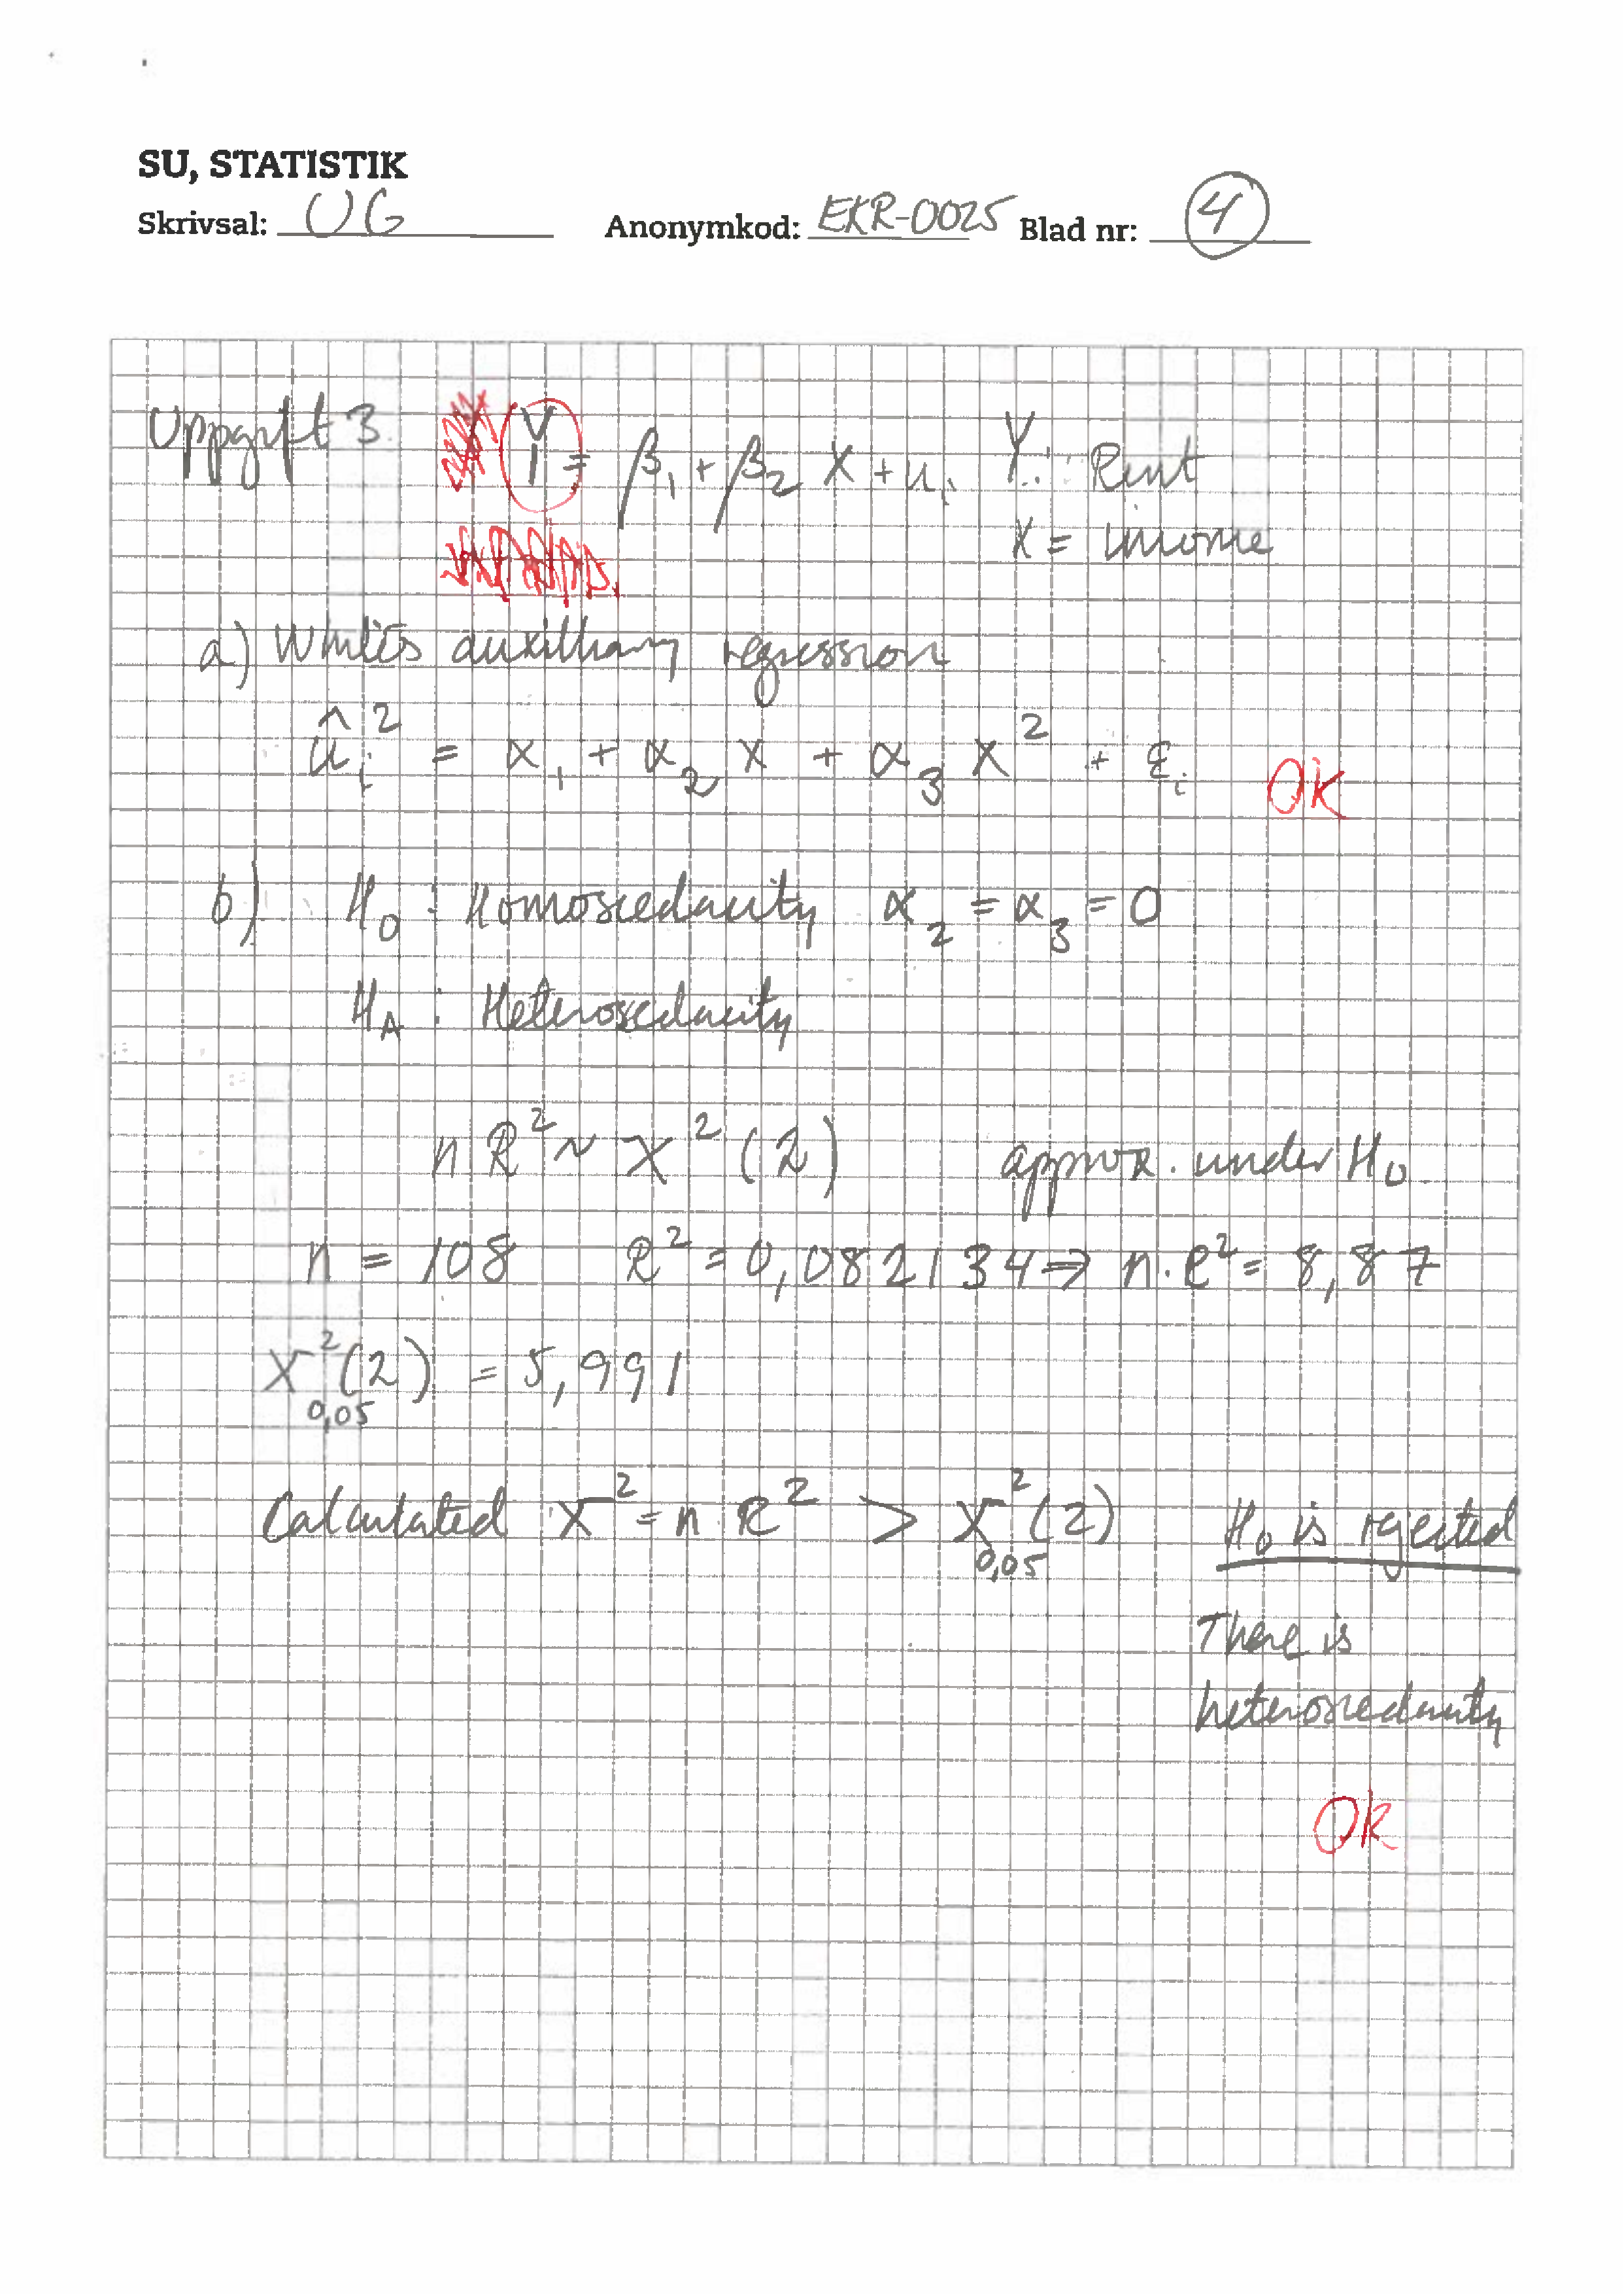 SU, STATISTIK
Skrivsal: UG Anonymkod: EKR-0025 Blad nr: 4
Uppgift 3. Y = β₁ + β₂ X + uᵢ Y: Rent
X = Income
a) White's auxilliary regression
ûᵢ² = α₁ + α₂ X + α₃ X² + εᵢ OK
b) H₀ : Homoscedacity α₂ = α₃ = 0
H_A : Heteroscedacity
n R² ~ χ² (2) approx. under H₀.
n = 108 R² = 0,082134 ⇒ n·R² = 8,87
χ²₀,₀₅ (2) = 5,991
Calculated χ² = n R² > χ²₀,₀₅ (2) H₀ is rejected
There is
heteroscedacity
OK